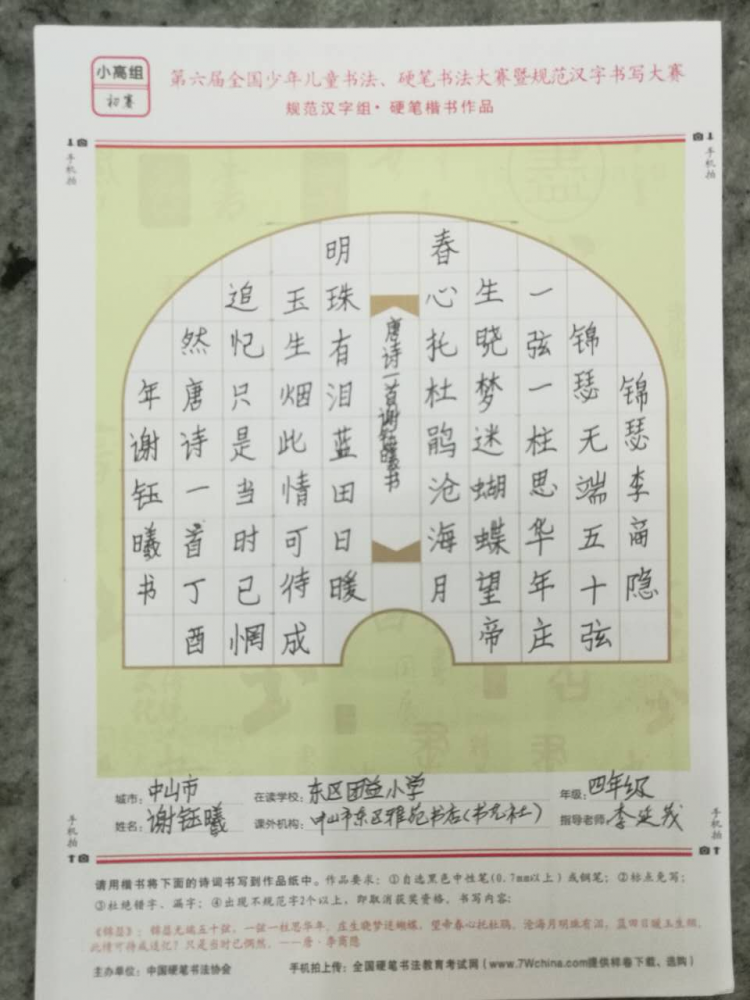 小高组
初赛
第六届全国少年儿童书法、硬笔书法大赛暨规范汉字书写大赛
规范汉字组·硬笔楷书作品
手机拍
手机拍
锦瑟李商隐
锦瑟无端五十弦
一弦一柱思华年庄
生晓梦迷蝴蝶望帝
春心托杜鹃沧海月
唐诗一首谢钰曦书
明珠有泪蓝田日暖
玉生烟此情可待成
追忆只是当时已惘
然唐诗一首丁酉
年谢钰曦书
城市：中山市 在读学校：东区小学 年级：四年级
姓名：谢钰曦 课外机构：中山市东区雅苑书店 指导老师：李
手机拍
手机拍
请用楷书将下面的诗词书写到作品纸中。作品要求：①自选黑色中性笔(0.7mm以上)或钢笔；②标点免写；
③杜绝错字、漏字；④出现不规范字2个以上，即取消获奖资格，书写内容：
《锦瑟》：锦瑟无端五十弦，一弦一柱思华年。庄生晓梦迷蝴蝶，望帝春心托杜鹃。沧海月明珠有泪，蓝田日暖玉生烟。
此情可待成追忆？只是当时已惘然。——唐·李商隐
主办单位：中国硬笔书法协会 手机拍上传：全国硬笔书法教育考试网（www.7Wchina.com提供样卷下载、选购）